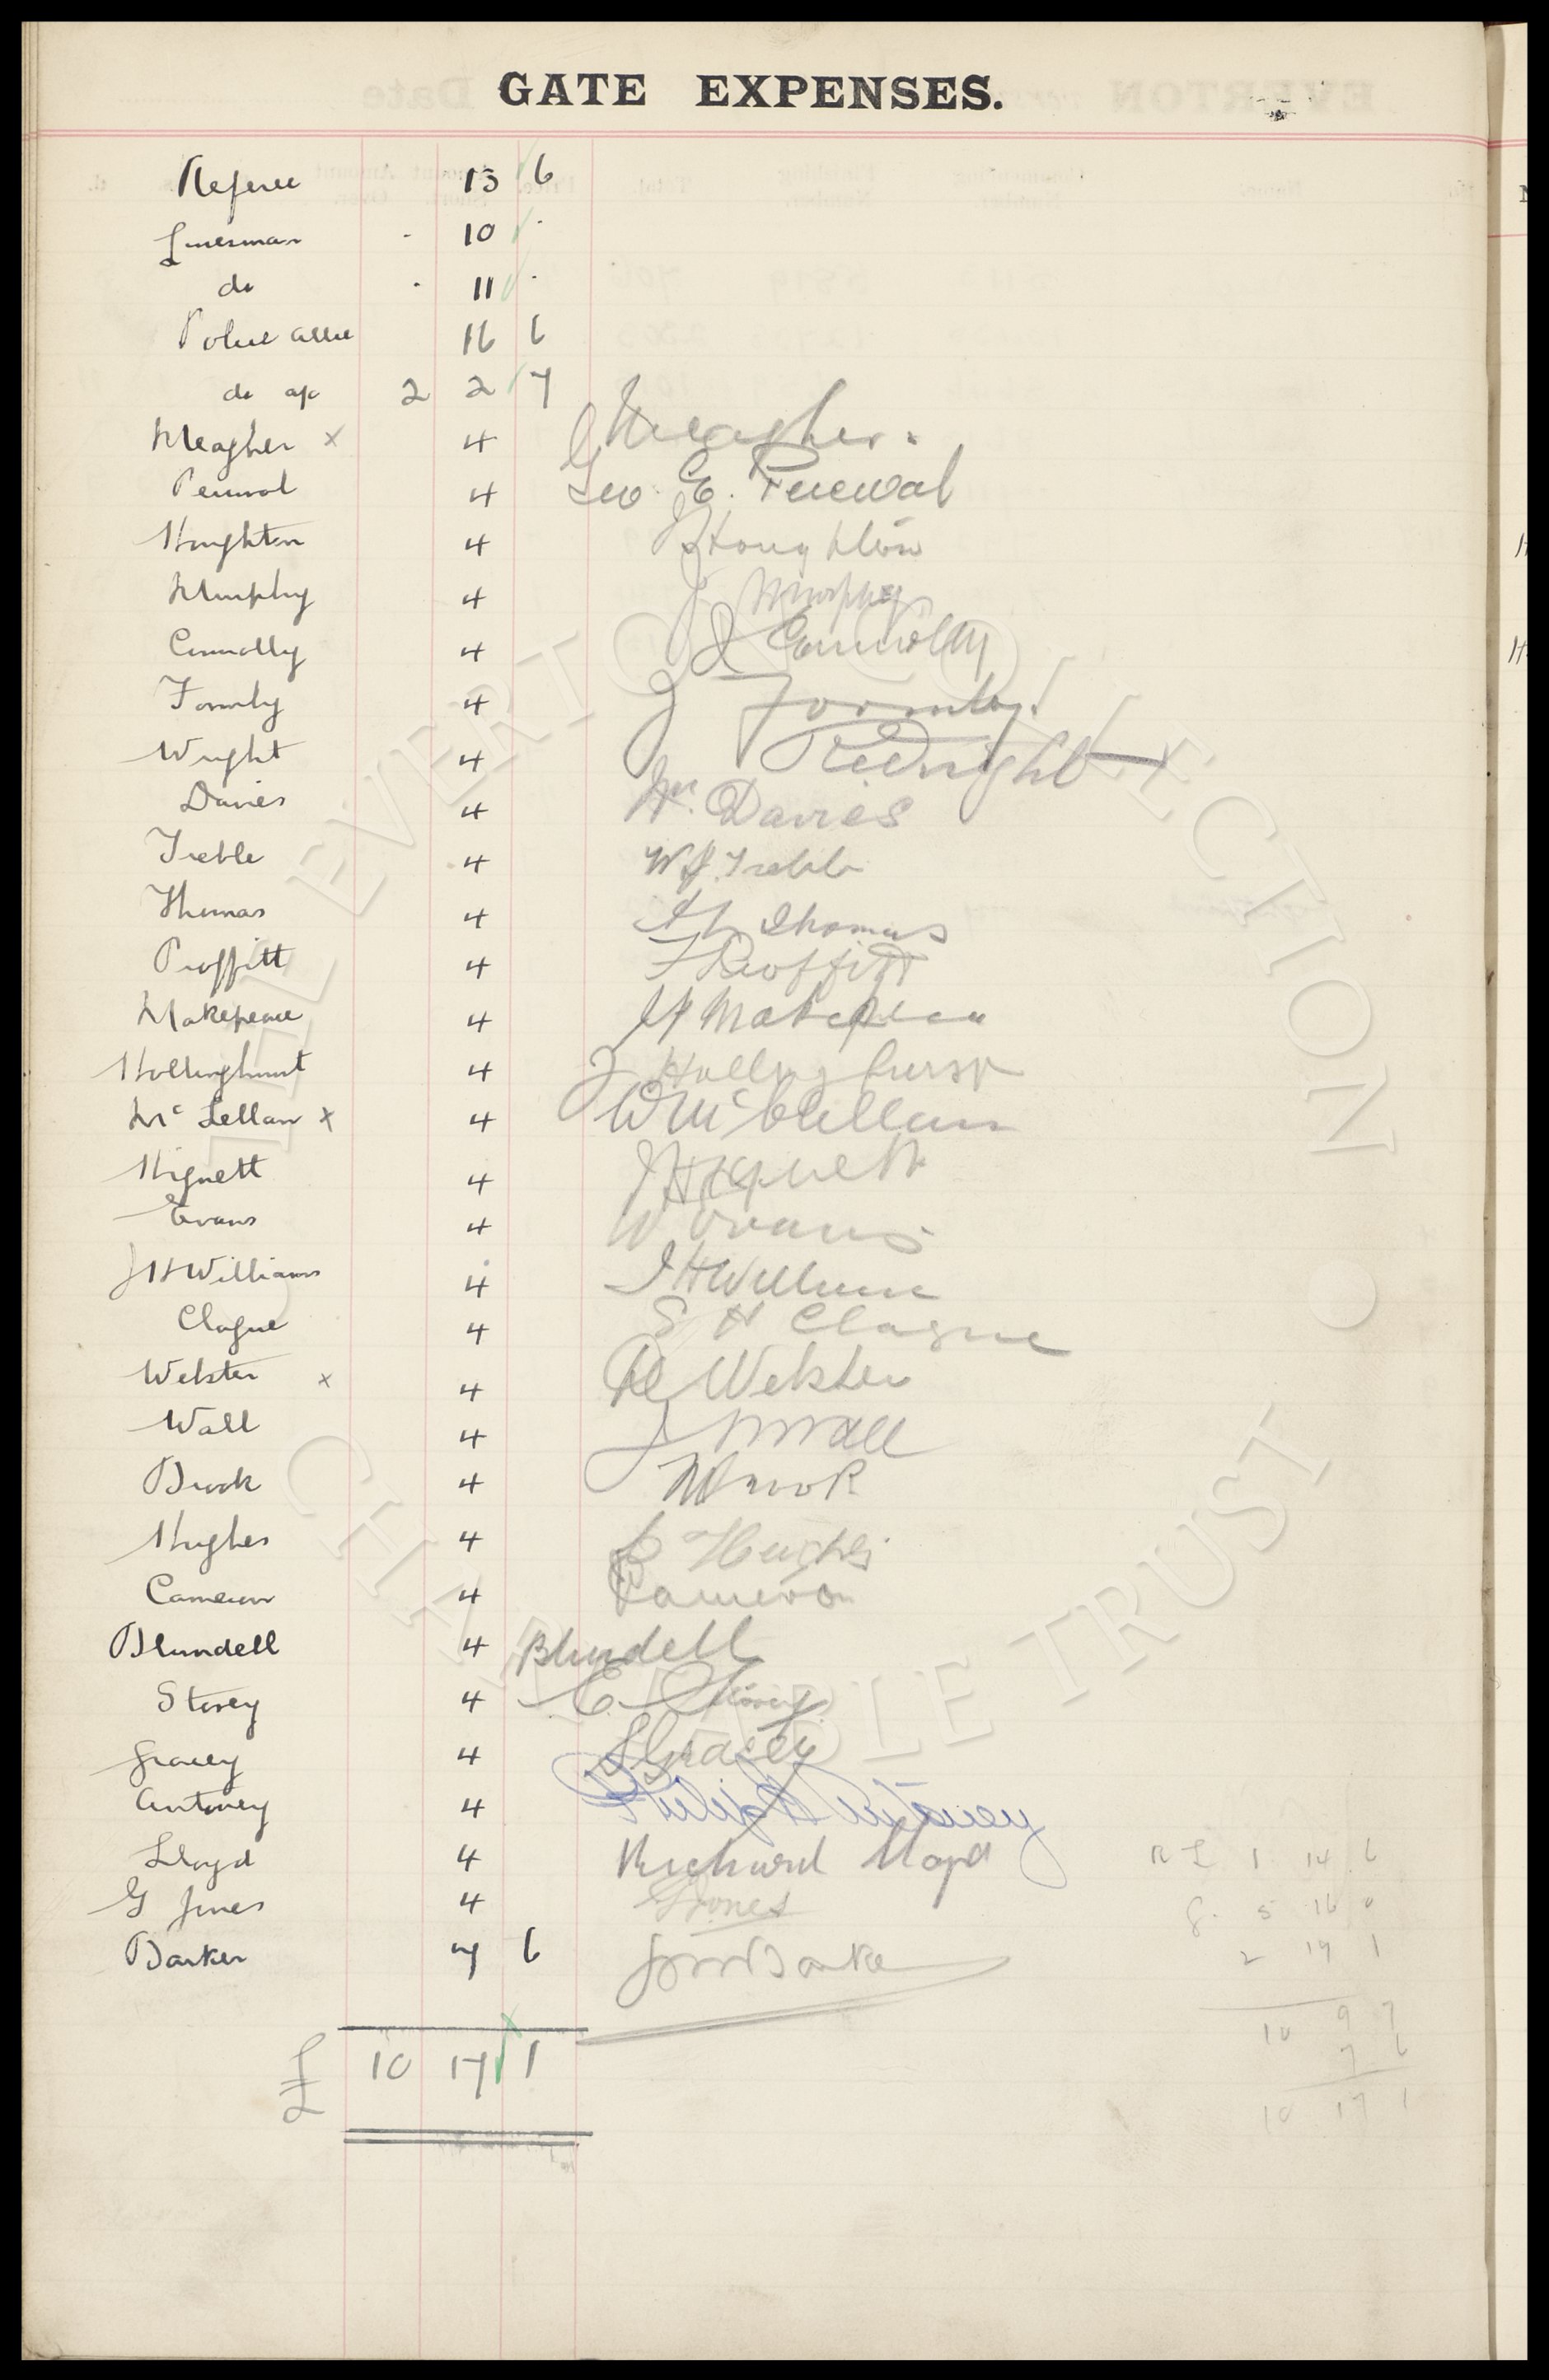 GATE EXPENSES.
Referee 13 6
Linesman - 10 -
do - 11 -
Police allce 16 6
do a/c 2 2 7
Meagher x 4 J Meagher.
Percival 4 Geo. E. Percival
Houghton 4 J Houghton
Murphy 4 J Murphy
Connolly 4 J Connolly
Formby 4 J Formby.
Wright 4 R Wright
Davies 4 Wm. Davies
Treble 4 W J. Treble
Thomas 4 Thomas
Proffitt 4 F Proffitt
Makepeace 4 Makepeace
Hollinghurst 4 J Hollinghurst
Mc Lellan x 4 W Mc Clellan
Hignett 4 J Hignett
Evans 4 W Evans
J H Williams 4 J H Williams
Clague 4 S H Clague
Webster x 4 Webster
Wall 4 J Wall
Brook 4 Brook
Hughes 4 Hughes
Cameron 4 Cameron
Blundell 4 Blundell
Storey 4 E. Storey
Gracey 4 J Gracey
Antoney 4 Philip H Antoney
Lloyd 4 Richard Lloyd
R L 1 14 6
G Jones 4 G Jones
g. 5 16 0
Barker 7 6 Barker
2 19 1
10 9 7
7 6
£ 10 17 1
10 17 1
THE EVERTON COLLECTION CHARITABLE TRUST